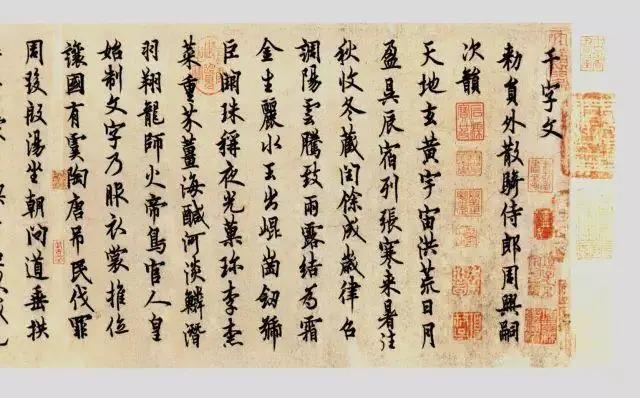 千字文
勑員外散騎侍郎周興嗣
次韻
天地玄黃宇宙洪荒日月
盈昃辰宿列張寒来暑往
秋收冬藏閏餘成歲律召
調陽雲騰致雨露結為霜
金生麗水玉出崐崗劒號
巨闕珠稱夜光菓珍李柰
菜重芥薑海醎河淡鱗潛
羽翔龍師火帝鳥官人皇
始制文字乃服衣裳推位
讓國有虞陶唐吊民伐罪
周發殷湯坐朝問道垂拱